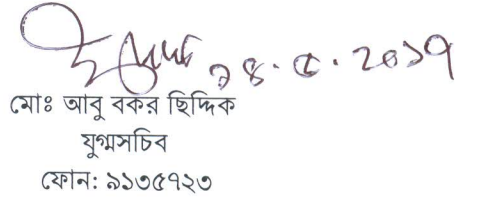 ২৪.৫.২০১৭
মোঃ আবু বকর ছিদ্দিক
যুগ্মসচিব
ফোন: ৯১৩৫৭২৩